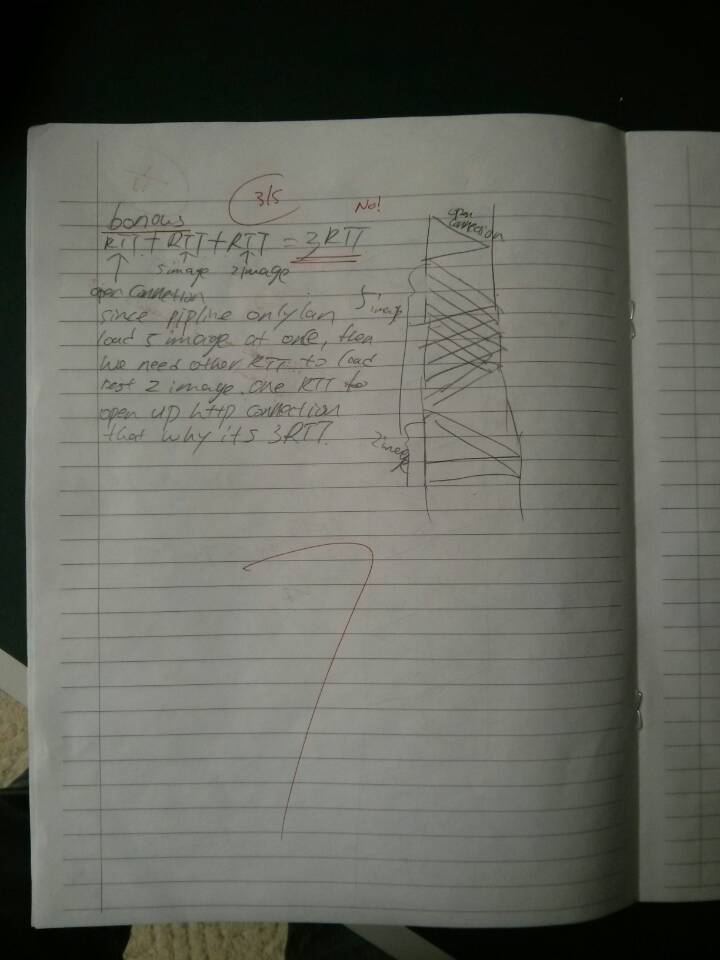 3/5
No!
bonous
RTT + RTT + RTT = 3RTT
5 image 2 image
open Connection
since pipline only can
load 5 image at one, then
we need other RTT to load
rest 2 image. one RTT to
open up http connection
that why its 3RTT.
open
connection
5
image
2 image